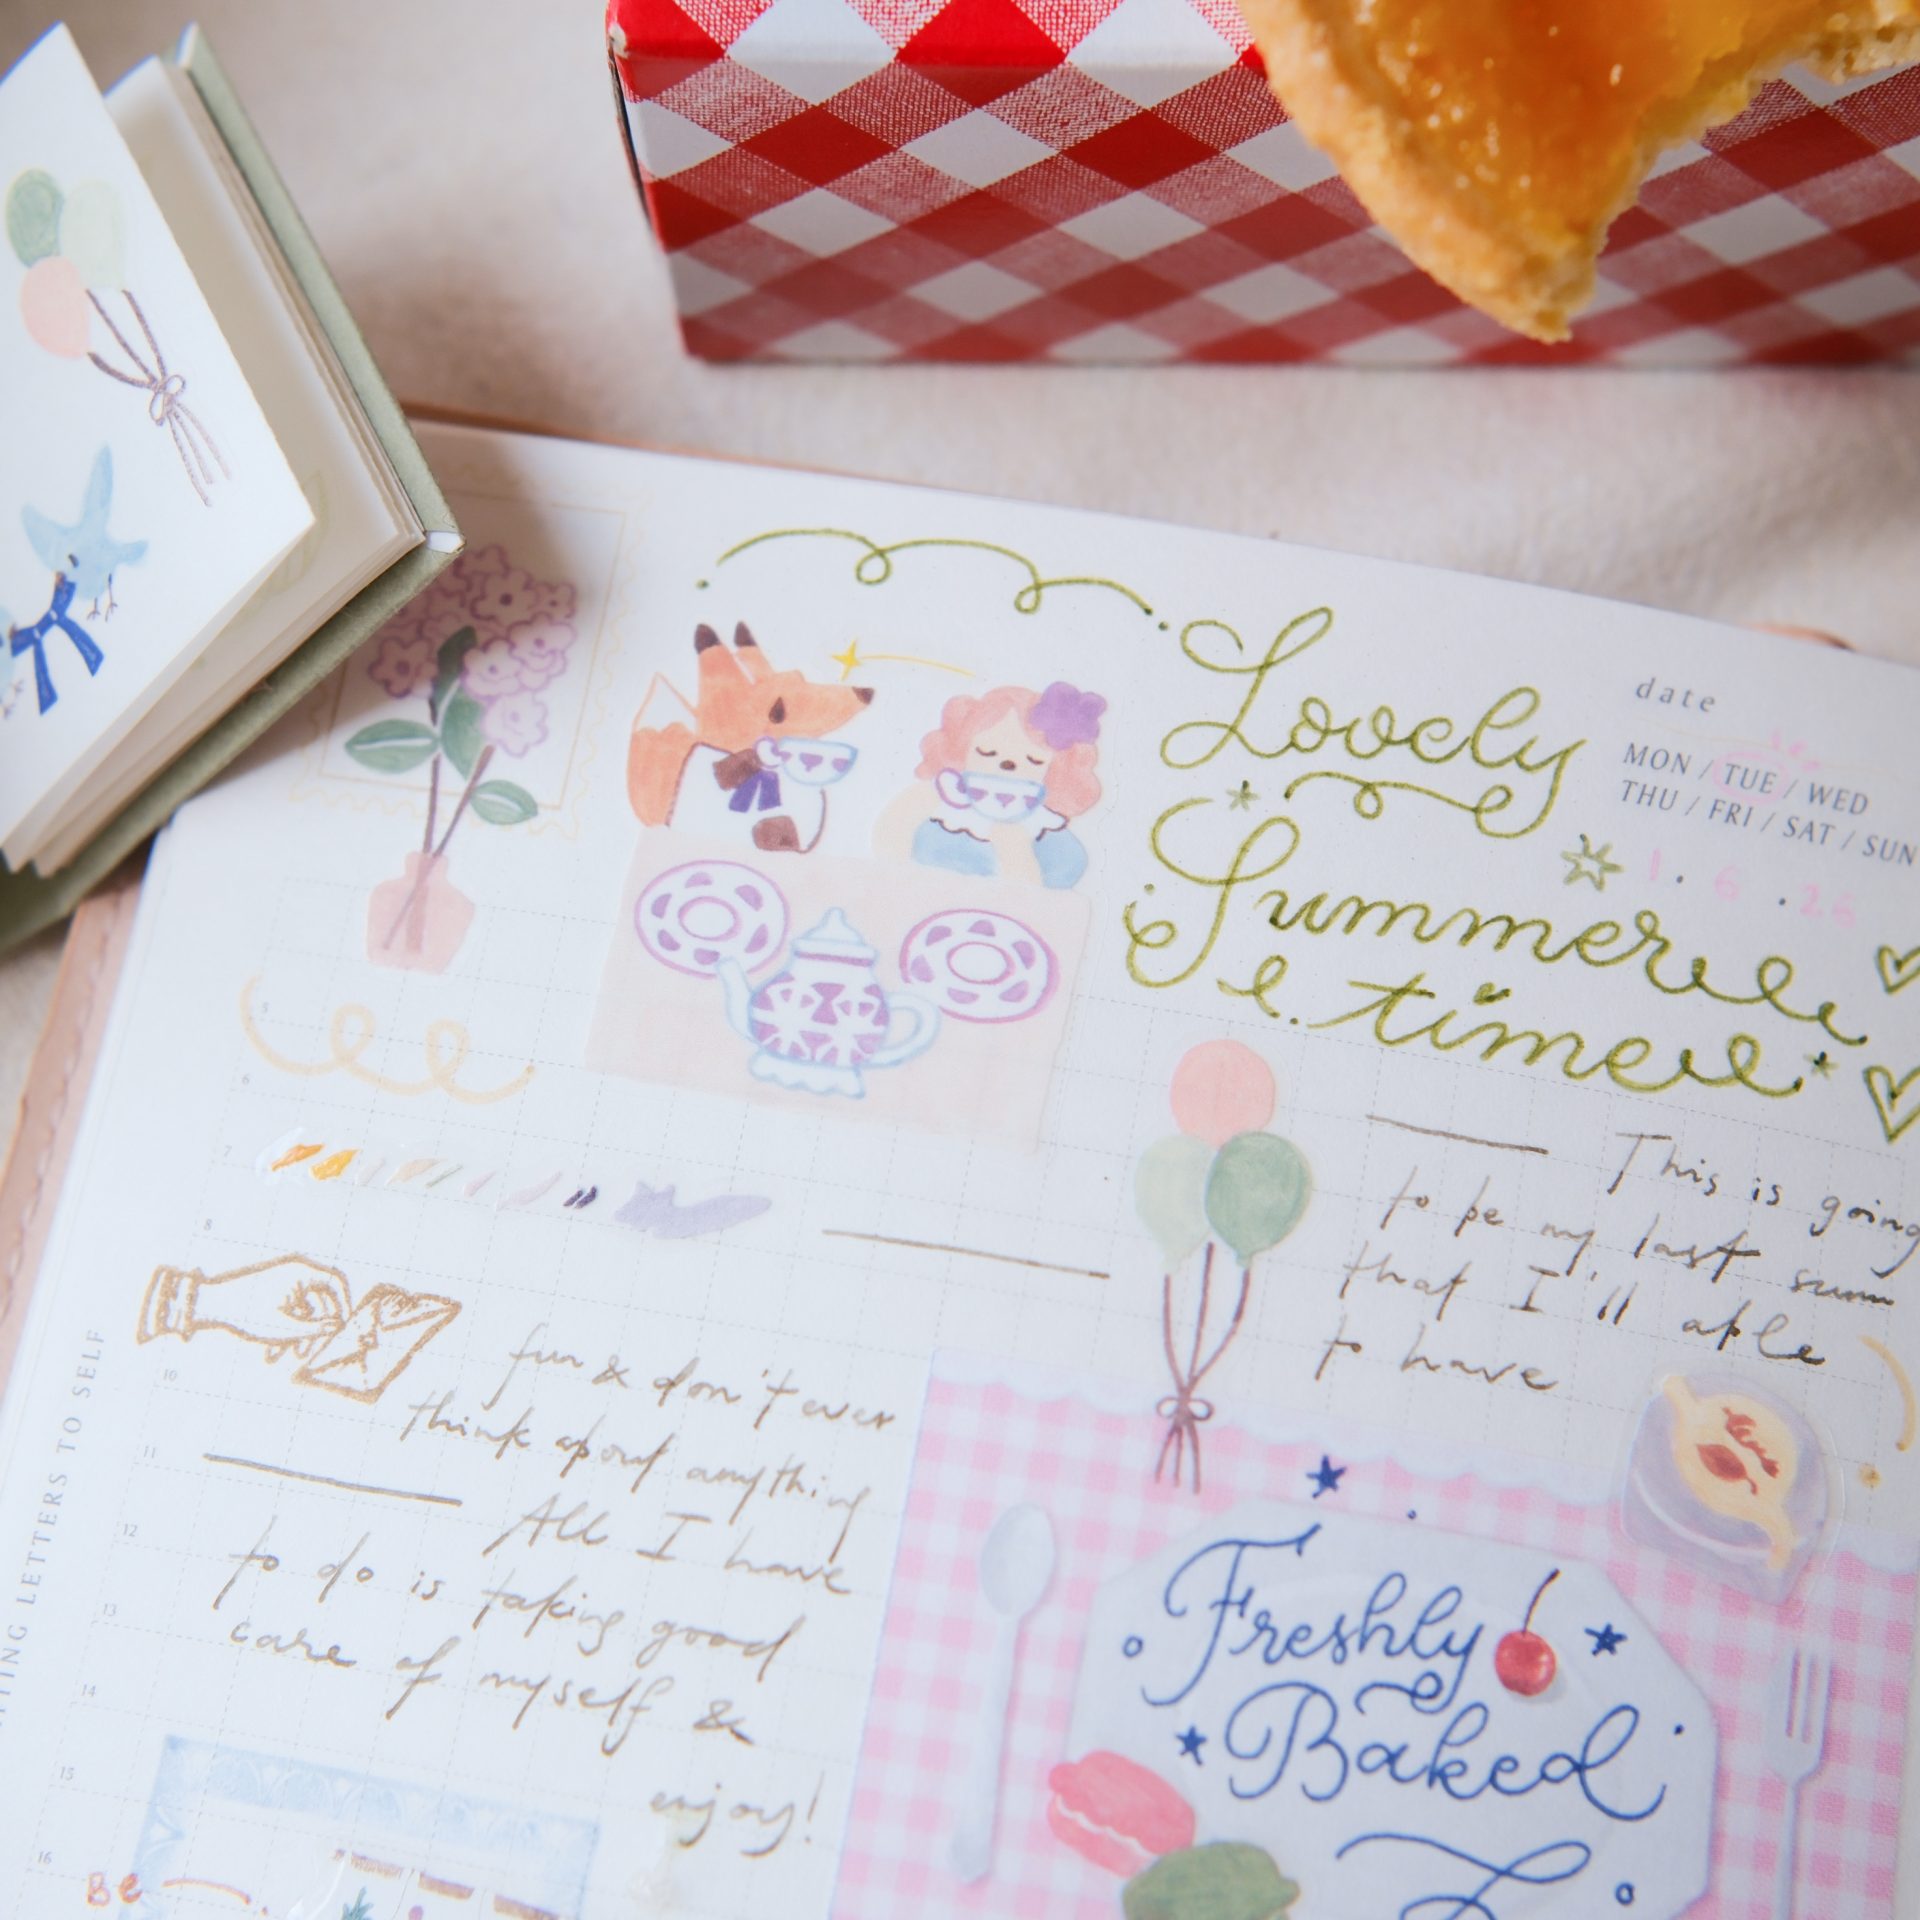 Lovely
Summer
time
date
MON / TUE / WED
THU / FRI / SAT / SUN
1 . 6 . 26
This is going
to be my last summ
that I'll able
to have
5
6
7
8
10
11
12
13
14
15
16
fun & don't ever
think about anything
All I have
to do is taking good
care of myself &
enjoy!
Be
Freshly
Baked
LETTERS TO SELF